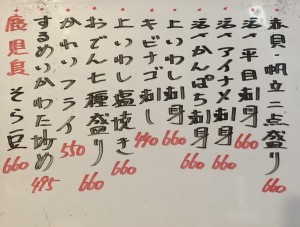 赤貝・帆立二点盛り 660
活〆平目刺身 660
活〆アイナメ刺身 660
活〆かんぱち刺身 660
上いわし刺身 660
キビナゴ刺し 440
上いわし塩焼き 660
おでん七種盛り 660
かれいフライ 550
するめいかわた炒め 495
鹿児島そら豆 660